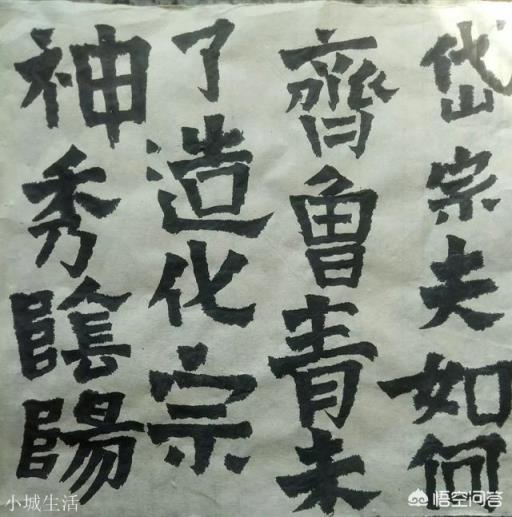 岱宗夫如何
齊魯青未
了造化宗
神秀陰陽
小城生活
悟空问答